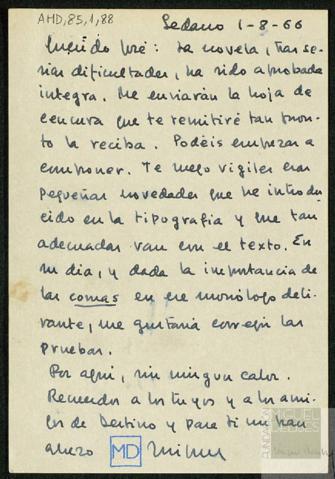 AHD,85,1,88
Sedano 1-8-66
Querido José: La novela, tras se-
rias dificultades, ha sido aprobada
íntegra. Me enviarán la hoja de
censura que te remitiré tan pron-
to la reciba. Podéis empezar a
componer. Te ruego vigiles esas
pequeñas novedades que he introdu-
cido en la tipografía y que tan
adecuadas van con el texto. En
su día, y dada la importancia de
las comas en ese monólogo deli-
rante, me gustaría corregir las
pruebas.
Por aquí, sin ningún calor.
Recuerdos a los tuyos y a los ami-
gos de Destino y para ti un gran
abrazo
MD
Miguel
FUNDACIÓN
MIGUEL
DELIBES